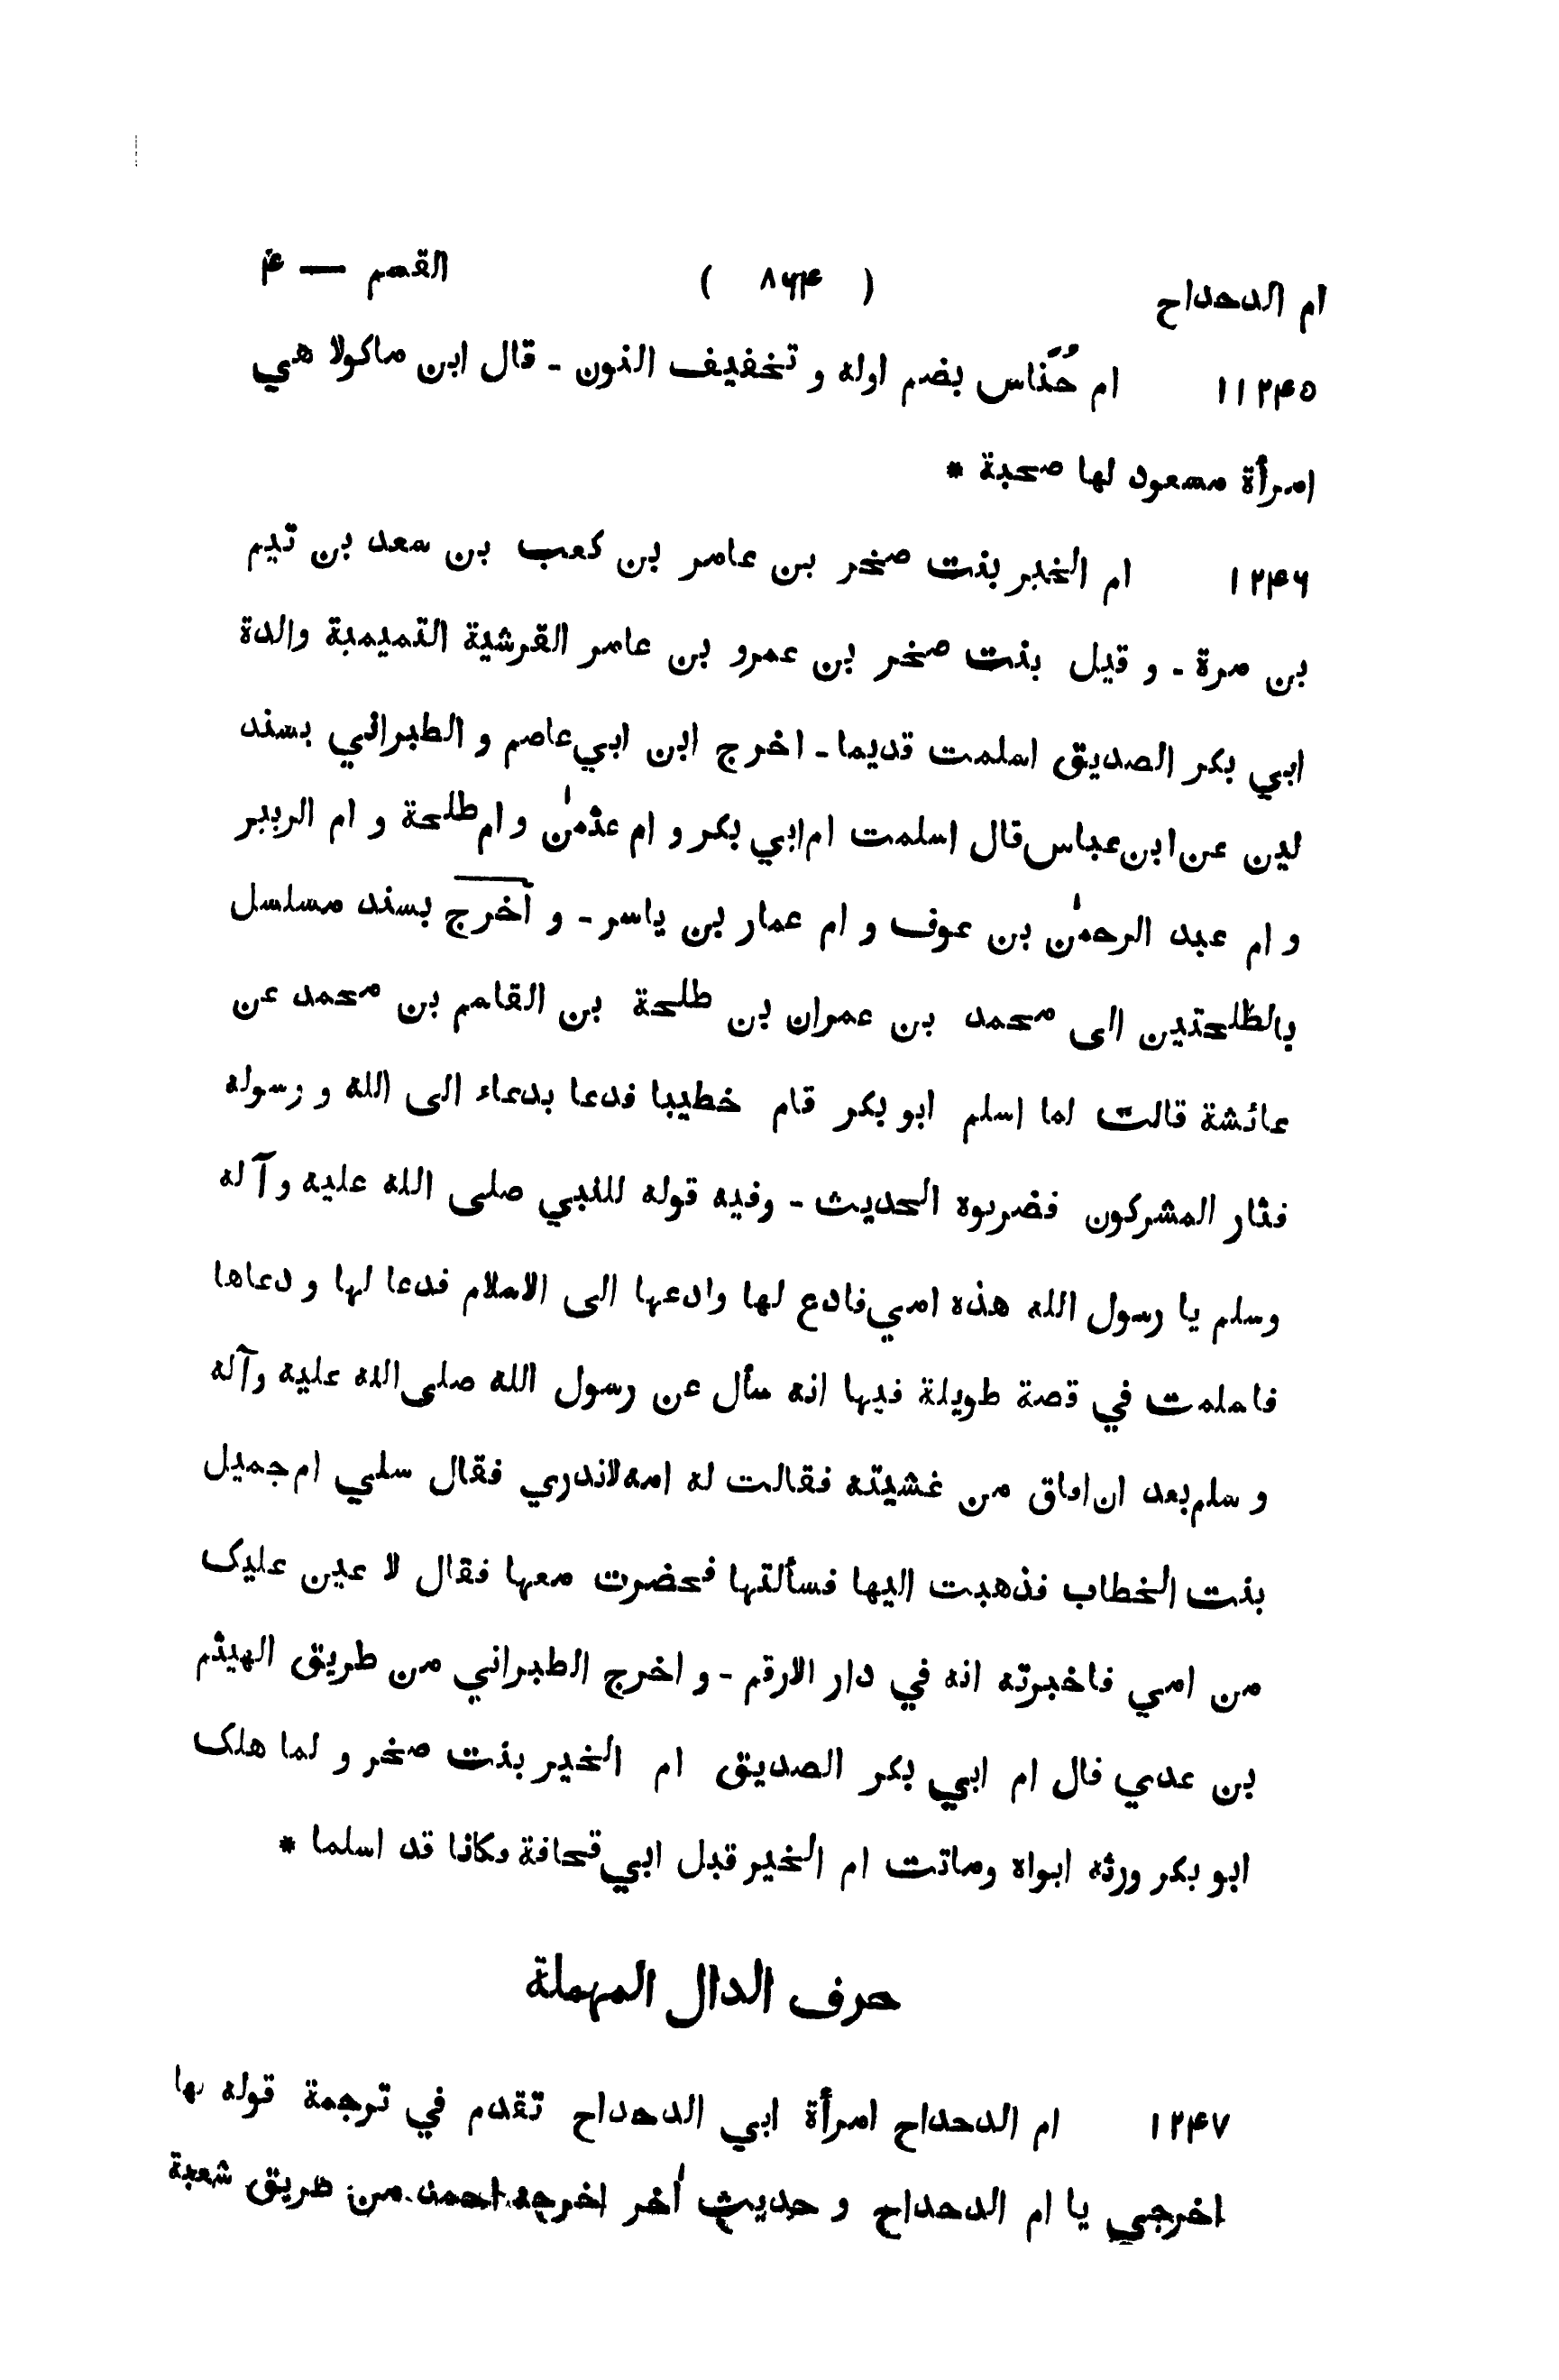 ام الدحداح ( ۸۶۴ ) القسم — ۴
۱۱۲۴۵ ام حُنَاس بضم اوله و تخفيف النون - قال ابن ماكولا هي
امرأة مسعود لها صحبة *
۱۲۴۶ ام الخير بنت صخر بن عامر بن كعب بن سعد بن تيم
بن مرة - و قيل بنت صخر بن عمرو بن عامر القرشية التميمية والدة
ابي بكر الصديق اسلمت قديما - اخرج ابن ابي عاصم و الطبراني بسند
لين عن ابن عباس قال اسلمت ام ابي بكر و ام عثمٰن و ام طلحة و ام الزبير
و ام عبد الرحمٰن بن عوف و ام عمار بن ياسر - و اخرج بسند مسلسل
بالطلحتين الى محمد بن عمران بن طلحة بن القاسم بن محمد عن
عائشة قالت لما اسلم ابو بكر قام خطيبا فدعا بدعاء الى الله و رسوله
فثار المشركون فضربوه الحديث - وفيه قوله للنبي صلى الله عليه وآله
وسلم يا رسول الله هذه امي فادع لها وادعها الى الاسلام فدعا لها و دعاها
فاسلمت في قصة طويلة فيها انه سأل عن رسول الله صلى الله عليه وآله
و سلم بعد ان افاق من غشيته فقالت له امه لاندري فقال سلي ام جميل
بنت الخطاب فذهبت اليها فسألتها فحضرت معها فقال لا عين عليک
من امي فاخبرته انه في دار الارقم - و اخرج الطبراني من طريق الهيثم
بن عدي قال ام ابي بكر الصديق ام الخير بنت صخر و لما هلک
ابو بكر ورثه ابواه وماتت ام الخير قبل ابي قحافة وكانا قد اسلما *
حرف الدال المهملة
۱۲۴۷ ام الدحداح امرأة ابي الدحداح تقدم في ترجمة قوله لها
اخرجي يا ام الدحداح و حديث اٰخر اخرجه احمد من طريق شعبة